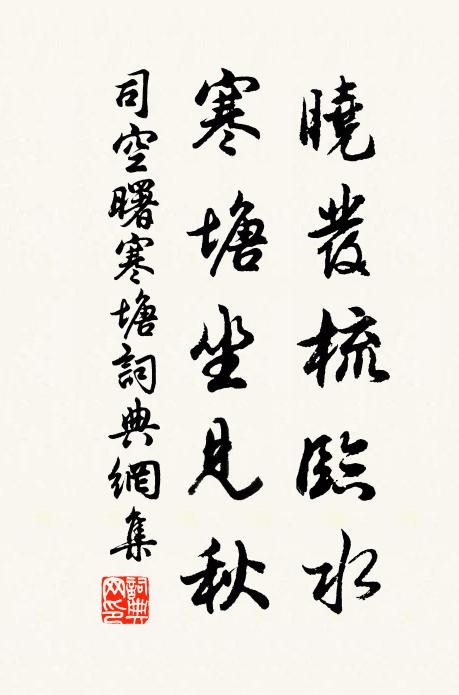 曉發梳臨水
寒塘坐見秋
司空曙寒塘詞典網集
詞典网印